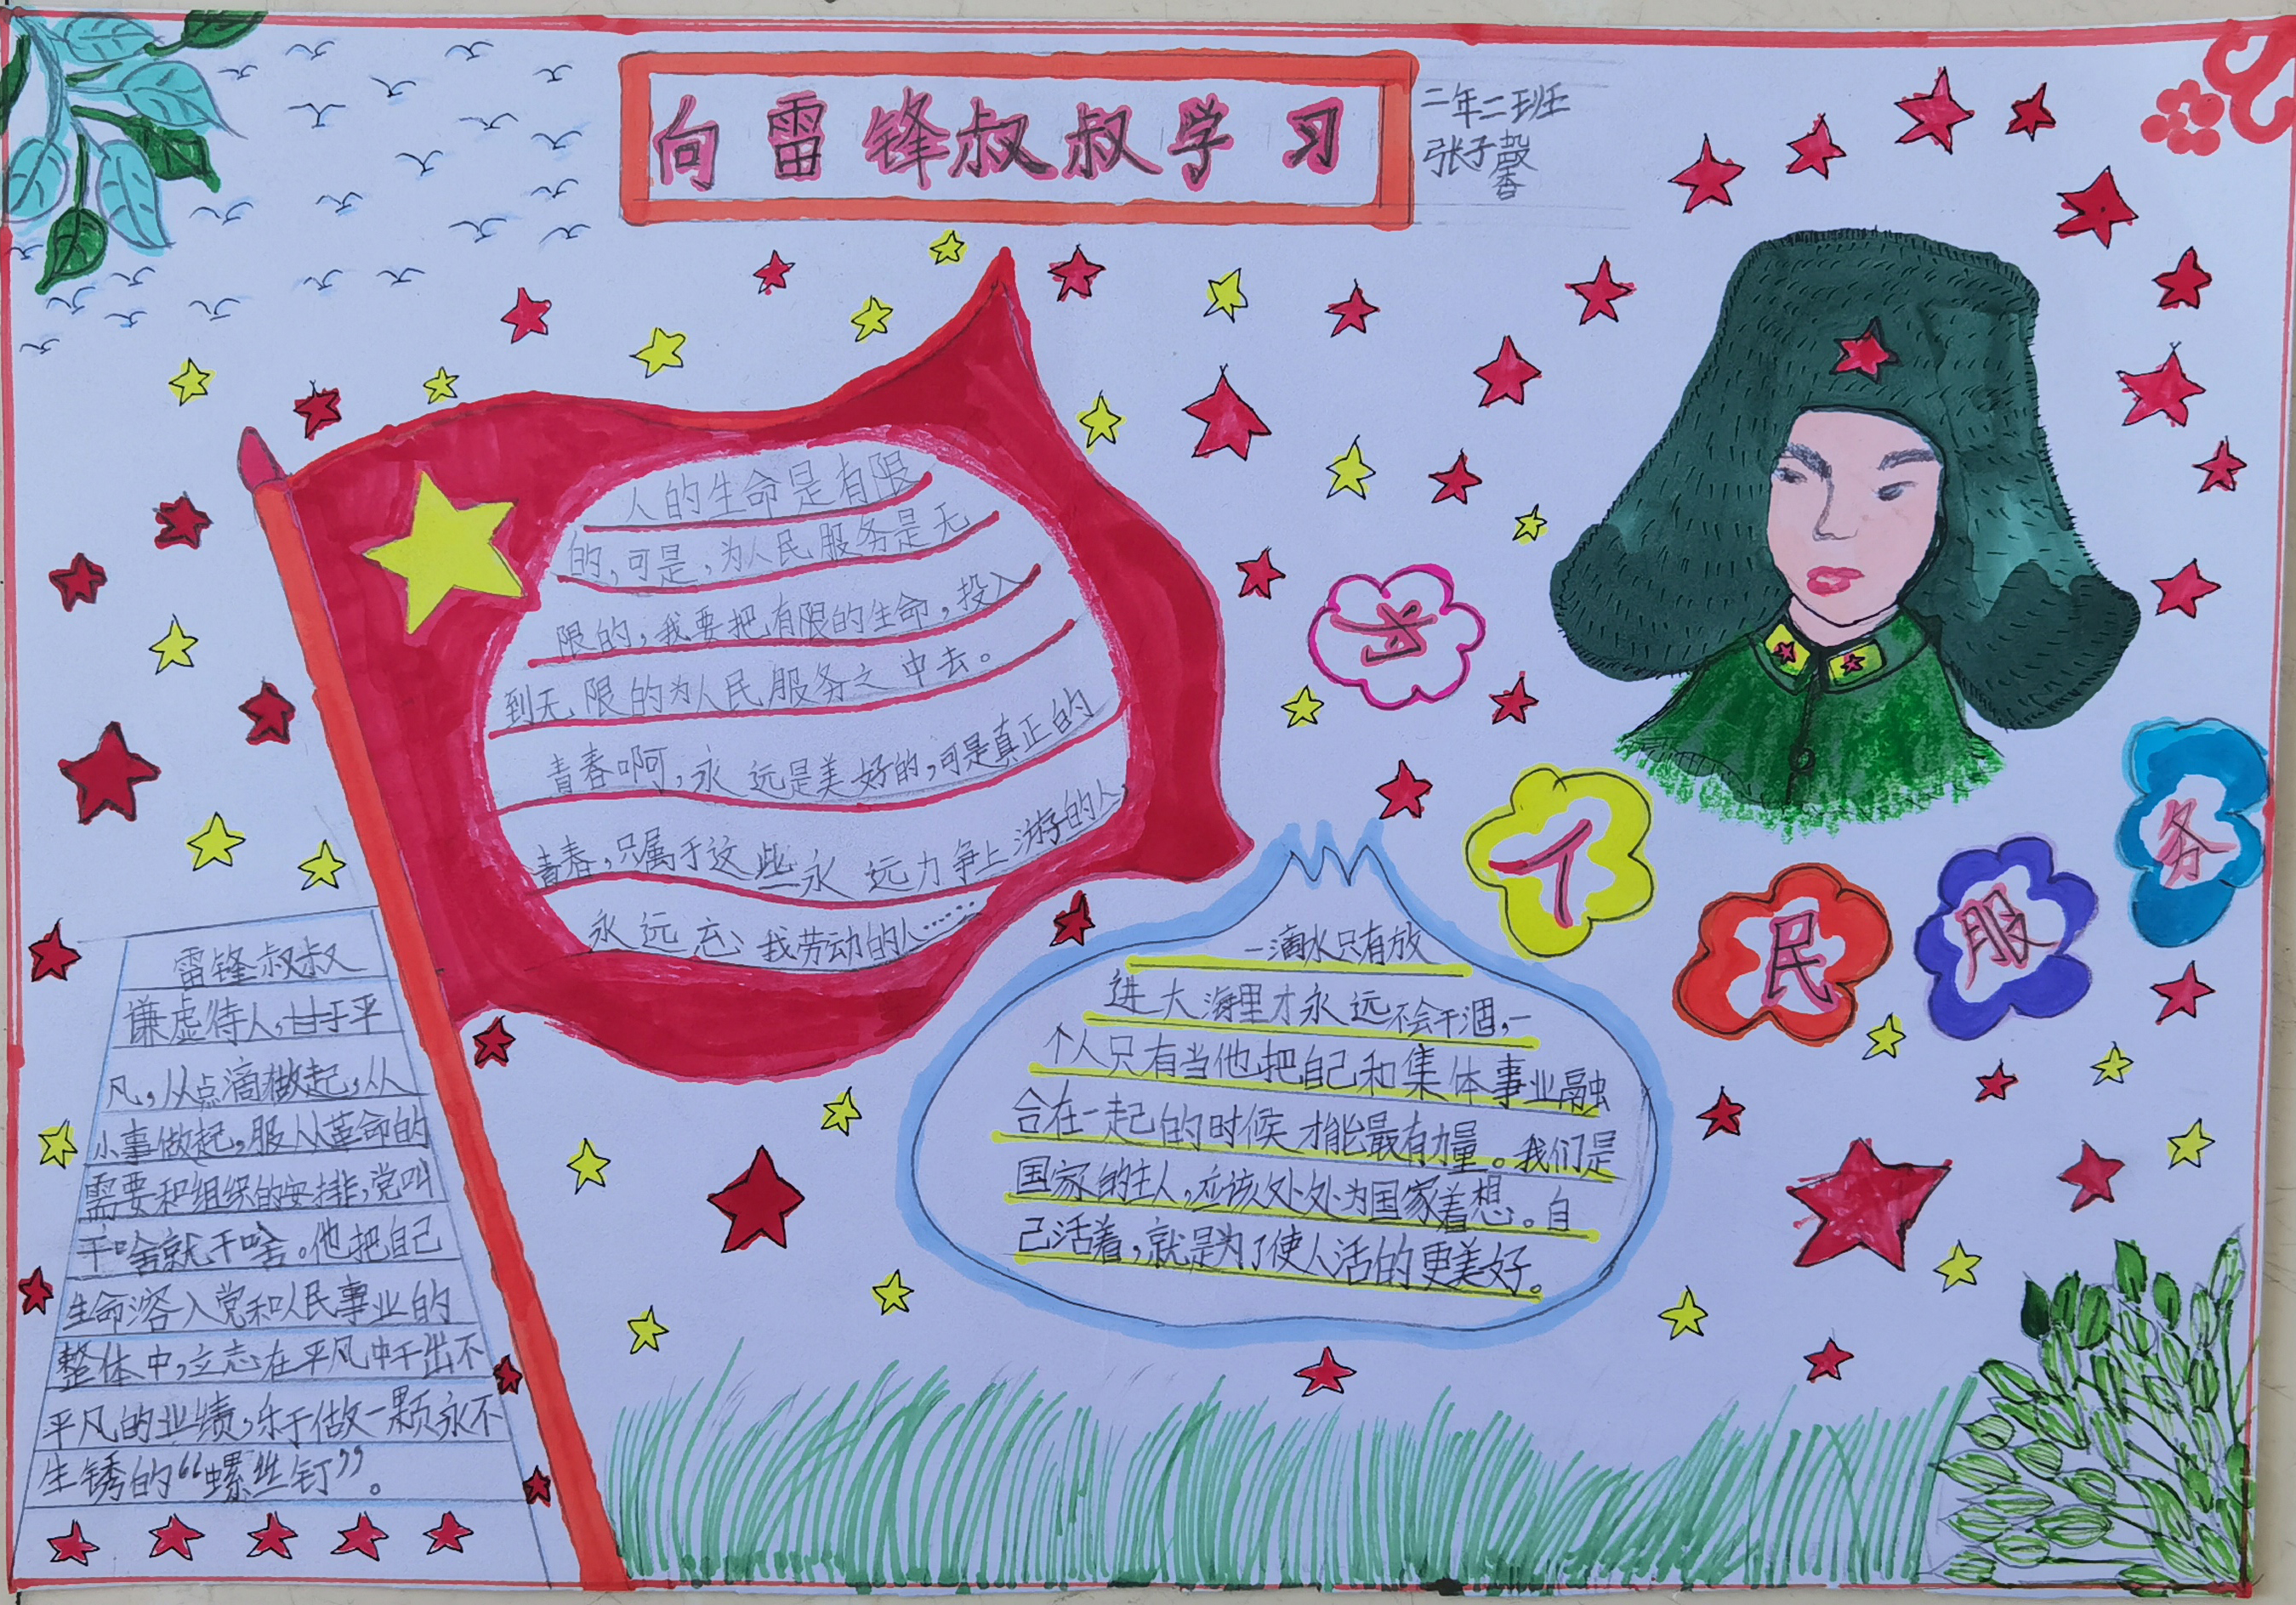 向雷锋叔叔学习
二年二班
张子馨
人的生命是有限
的，可是，为人民服务是无
限的，我要把有限的生命，投入
到无限的为人民服务之中去。
青春啊，永远是美好的，可是真正的
青春，只属于这些永远力争上游的人
永远忘我劳动的人……
为
人
民
服
务
雷锋叔叔
谦虚待人，甘于平
凡，从点滴做起，从
小事做起，服从革命的
需要和组织的安排，党叫
干啥就干啥。他把自己
生命溶入党和人民事业的
整体中，立志在平凡中干出不
平凡的业绩，乐于做一颗永不
生锈的“螺丝钉”。
一滴水只有放
进大海里才永远不会干涸，一
个人只有当他把自己和集体事业融
合在一起的时候才能最有力量。我们是
国家的主人，应该处处为国家着想。自
己活着，就是为了使人活的更美好。